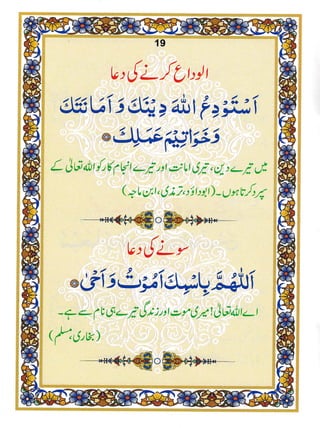 19
الوداع کرنے کی دعا
اَسْتَوْدِعُ اللهَ دِيْنَكَ وَ اَمَانَتَكَ
وَخَوَاتِيْمَ عَمَلِكَ
میں تیرے دین، تیری امانت اور تیرے انجام کار کو اللہ تعالیٰ کے
سپرد کرتا ہوں۔ (ابوداؤد، ترمذی، ابن ماجہ)
سونے کی دعا
اَللّٰهُمَّ بِاسْمِكَ اَمُوْتُ وَاَحْیٰ
اے اللہ تعالیٰ! میری موت اور زندگی تیرے ہی نام سے ہے۔
(بخاری، مسلم)